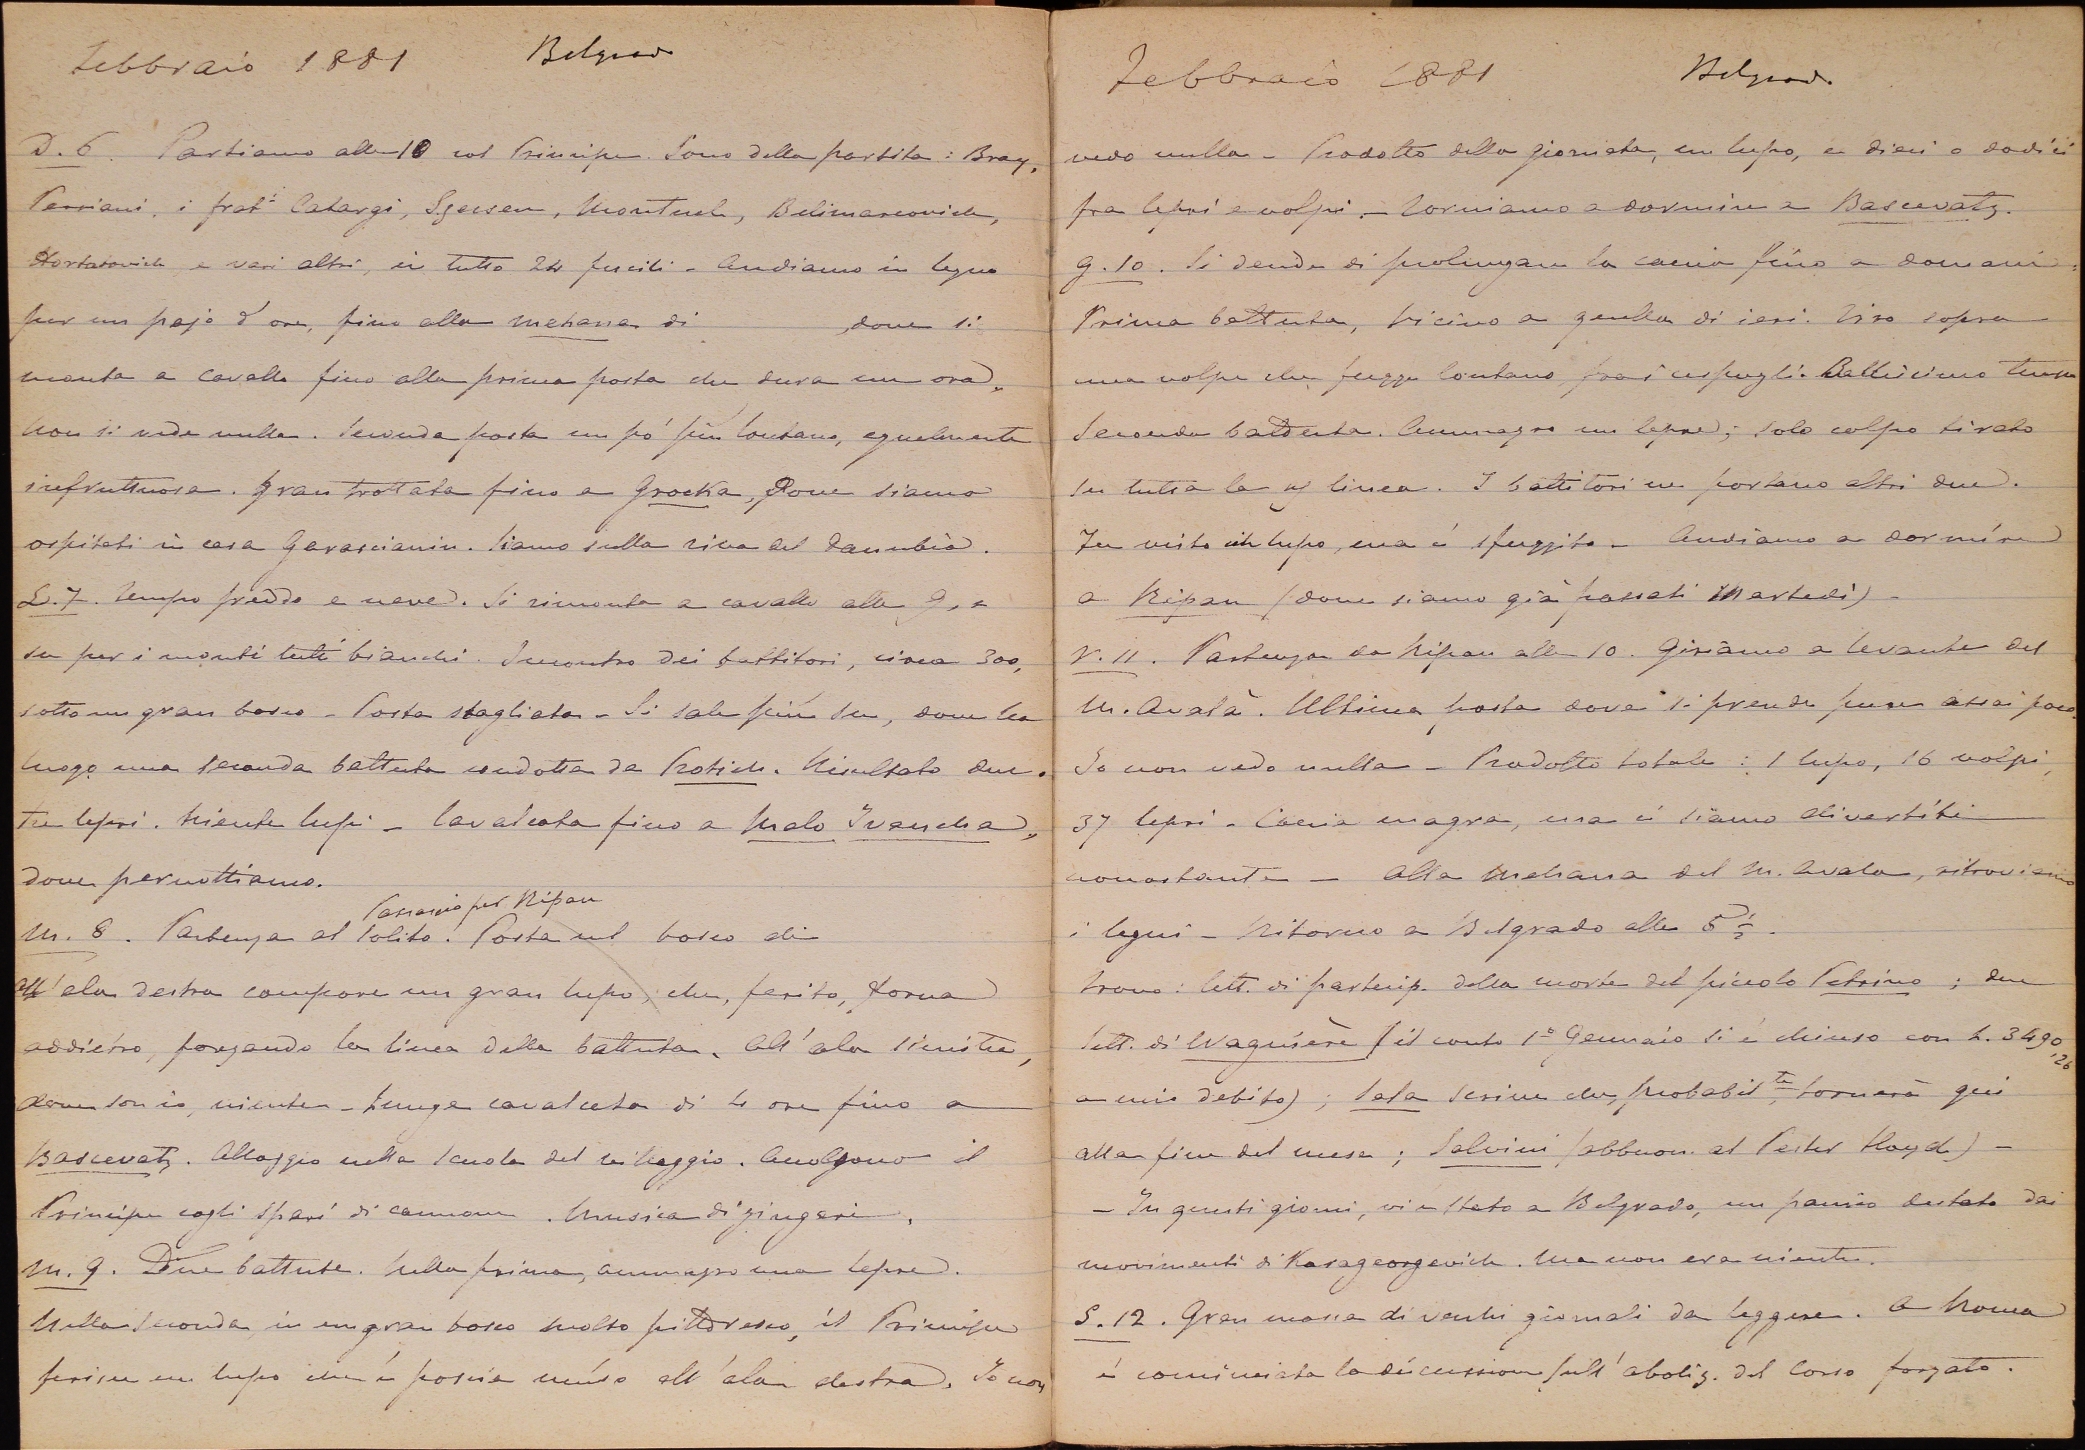 Febbraio 1881 Belgrado
D. 6. Partiamo alle 10 col Principe. Sono della partita: Bray,
Persiani, i frat.i Catargi, Montuch, Belimarcovich,
e vari altri, in tutto 24 fucili - Andiamo in legno
per un pajo d'ore, fino alla mehana di , dove si
monta a cavallo fino alla prima posta che dura un ora,
Non si vede nulla. Seconda posta un pó più lontano, egualmente
infruttuosa. Gran trottata fino a Grocka, dove siamo
ospitati in casa Garascianin. Siamo sulla riva del Danubio.
L. 7. Tempo freddo e neve. Si rimonta a cavallo alle 9, e
su per i monti tutti bianchi. Incontro dei battitori, circa 300,
sotto un gran bosco - Posta sbagliata - Si sale più su, dove ha
luogo una seconda battuta condotta da Protich. Risultato due o
tre lepri. Niente lupi - Cavalcata fino a Malo Ivancha,
dove pernottiamo.
Passaggio per Ripan
M. 8. Partenza al solito. Posta nel bosco di
All'ala destra compare un gran lupo, che, ferito, torna
addietro, forzando la linea della battuta. All'ala sinistra,
dove son io, niente - Lunga cavalcata di 4 ore fino a
Bascevatz. Alloggio nella scuola del villaggio. Accolgono il
Principe cogli spari di cannone. Musica di zingari.
M. 9. Due battute. Nella prima, ammazzo una lepre.
Nella seconda, in un gran bosco molto pittoresco, il Principe
ferisce un lupo che è poscia ucciso all'ala destra. Io non
Febbraio 1881 Belgrado
vedo nulla - Prodotto della giornata, un lupo, e dieci o dodici
fra lepri e volpi. - Torniamo a dormire a Bascevatz.
G. 10. Si decide di prolungare la caccia fino a domani.
Prima battuta, vicino a quella di ieri. Tiro sopra
una volpe che fugge lontano fra i cespugli. Bellissimo tempo
Seconda battuta. Ammazzo un lepre; solo colpo tirato
su tutta la linea. I battitori ne portano altri due.
Fu visto un lupo, ma è sfuggito - Andiamo a dormire
a Ripan (dove siamo già passati Martedì) -
V. 11. Partenza da Ripan alle 10. Giriamo a levante del
M. Avalà. Ultima posta dove si prende pure assai poco.
Io non vedo nulla - Prodotto totale: 1 lupo, 16 volpi,
37 lepri - Caccia magra, ma ci siamo divertiti
nonostante - Alla mehana del M. Avala, ritroviamo
i legni - Ritorno a Belgrado alle 5 ½.
Trovo: lett. di partecip. della morte del piccolo Petrino; due
lett. di Wagnière (il conto 1° Gennaio si è chiuso con L. 3490,26
a mio debito); Sala scrive che, probabil.te, tornerà qui
alla fine del mese; Salvini (abbuon. al Pester Lloyd) -
- In questi giorni, vi è stato a Belgrado, un panico destato dai
movimenti di Karageorgevich. Ma non era niente.
S. 12. Gran massa di vecchi giornali da leggere. A Roma
è cominciata la discussione sull'aboliz. del Corso forzato.